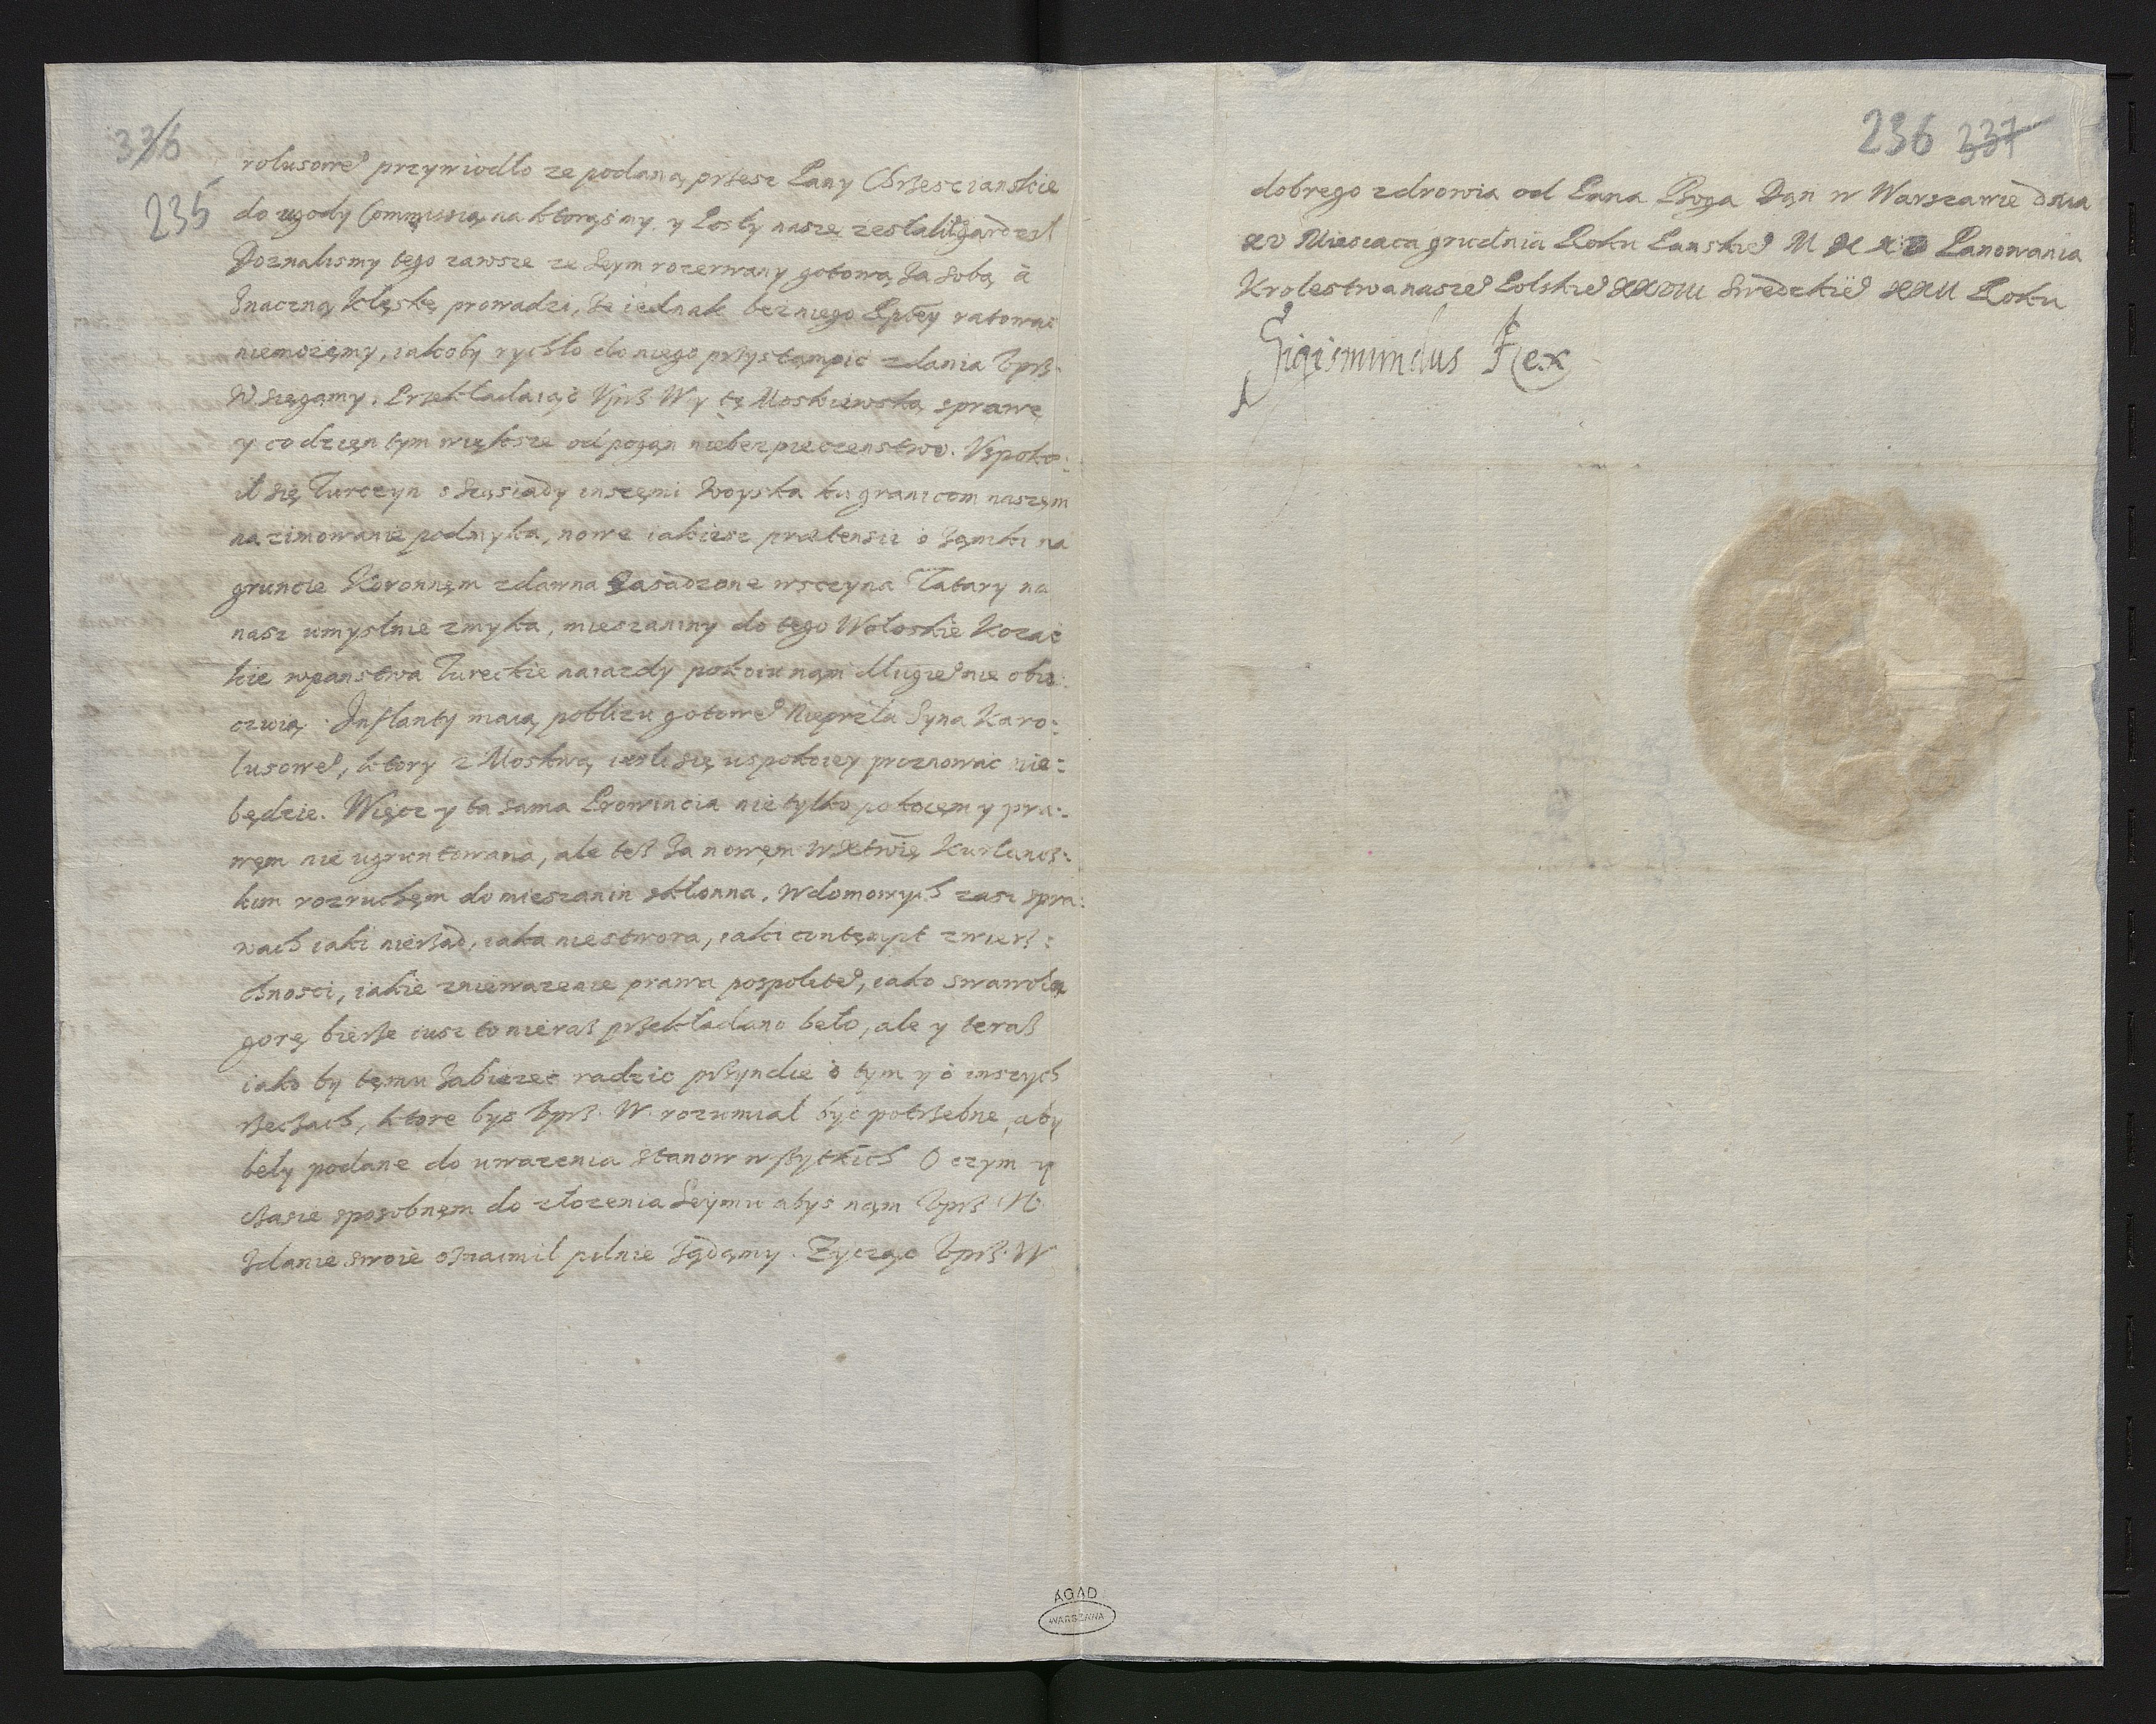 336
235
rolusowe° przywiodło ze podaną przesz Pany Chrześcianskie
do ugody Commissią na ktorąsmy y Posły nasze zesłali
Doznalismy tego zawsze ze Seym rozerwany gotową za sobą á
znaczną klęskę prowadzi, ze iednak bez niego Rptey ratowac
niemozęmy, iakoby rychło do niego przystąmpic zdania Uprz.
W sięgamy. Przekładaiąc Uprz. W y tę Moskiewską sprawę
y co dzięn tym większe od pogan niebezpieczenstwo. Uspoko:
ił się Turczyn s sąsiady inszęmi woyska ku granicom naszęm
na zimowanie podmyka, nowe iakiesz praetensie o zęmki na
gruncie Koronnęm zdawna zasadzone wsczyna Tatary na
nasz umyslnie zmyka, mieszaniny do tego Wołoskie Kozac
kie w panstwa Tureckie naiazdy pokoiu nąm dlugie° nie obie:
czuią. Inflanty maią poblizu gotowe° Nieprzla Syna Karo:
lusowe°, ktory z Moskwą iesli się uspokoięy proznowac nie:
będzie. Więcz y ta sama Prowincia nie tylko pokoięm y pra:
węm nie ugruntowana, ale tesz za nowęm w Xtwię Kurlands:
kim rozruchęm do mieszanin skłonna. W domowych zasz spra:
wach iaki nierząd, iaka niestwora, iaki contęmpt zwierz:
chnosci, iakie zniewazenie prawa pospolite°, iako swawola
gorę bierze iusz to nieraz przekładano beło, ale y teraz
iako by tęmu zabiezec radzic przyndie o tym y o inszych
rzeczach, ktore bys Uprz. W. rozumial byc potrzebne, aby
beły podane do uwazenia stanow wszytkich O czym y
czasie sposobnęm do złozenia Seymu abys nąm Uprz. W
zdanie swoie oznaimil pilnie ządąmy. Zycząc Uprz. W
236 337
dobrego zdrowia od Pana Boga Dąn w Warszawie dnia
xv Miesiaca grudnia Roku Panskie° M Panowania
Krolestwa nasze° Polskie° XXVIII Swedzkie° XXII Roku
Sigismundus Rex
AGAD
WARSZAWA